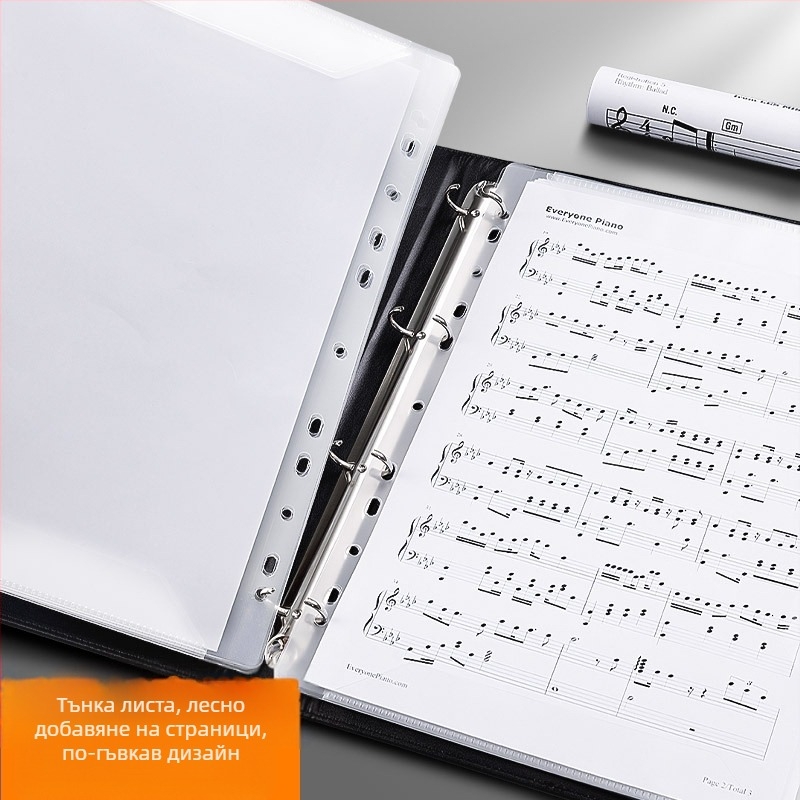 Registration 5,
Rhythm: Ballad
N.C.
Gm
Everyone Piano
www.EveryonePiano.com
EveryonePiano.com
Page 2/Total 3
Тънка листа, лесно
добавяне на страници,
по-гъвкав дизайн